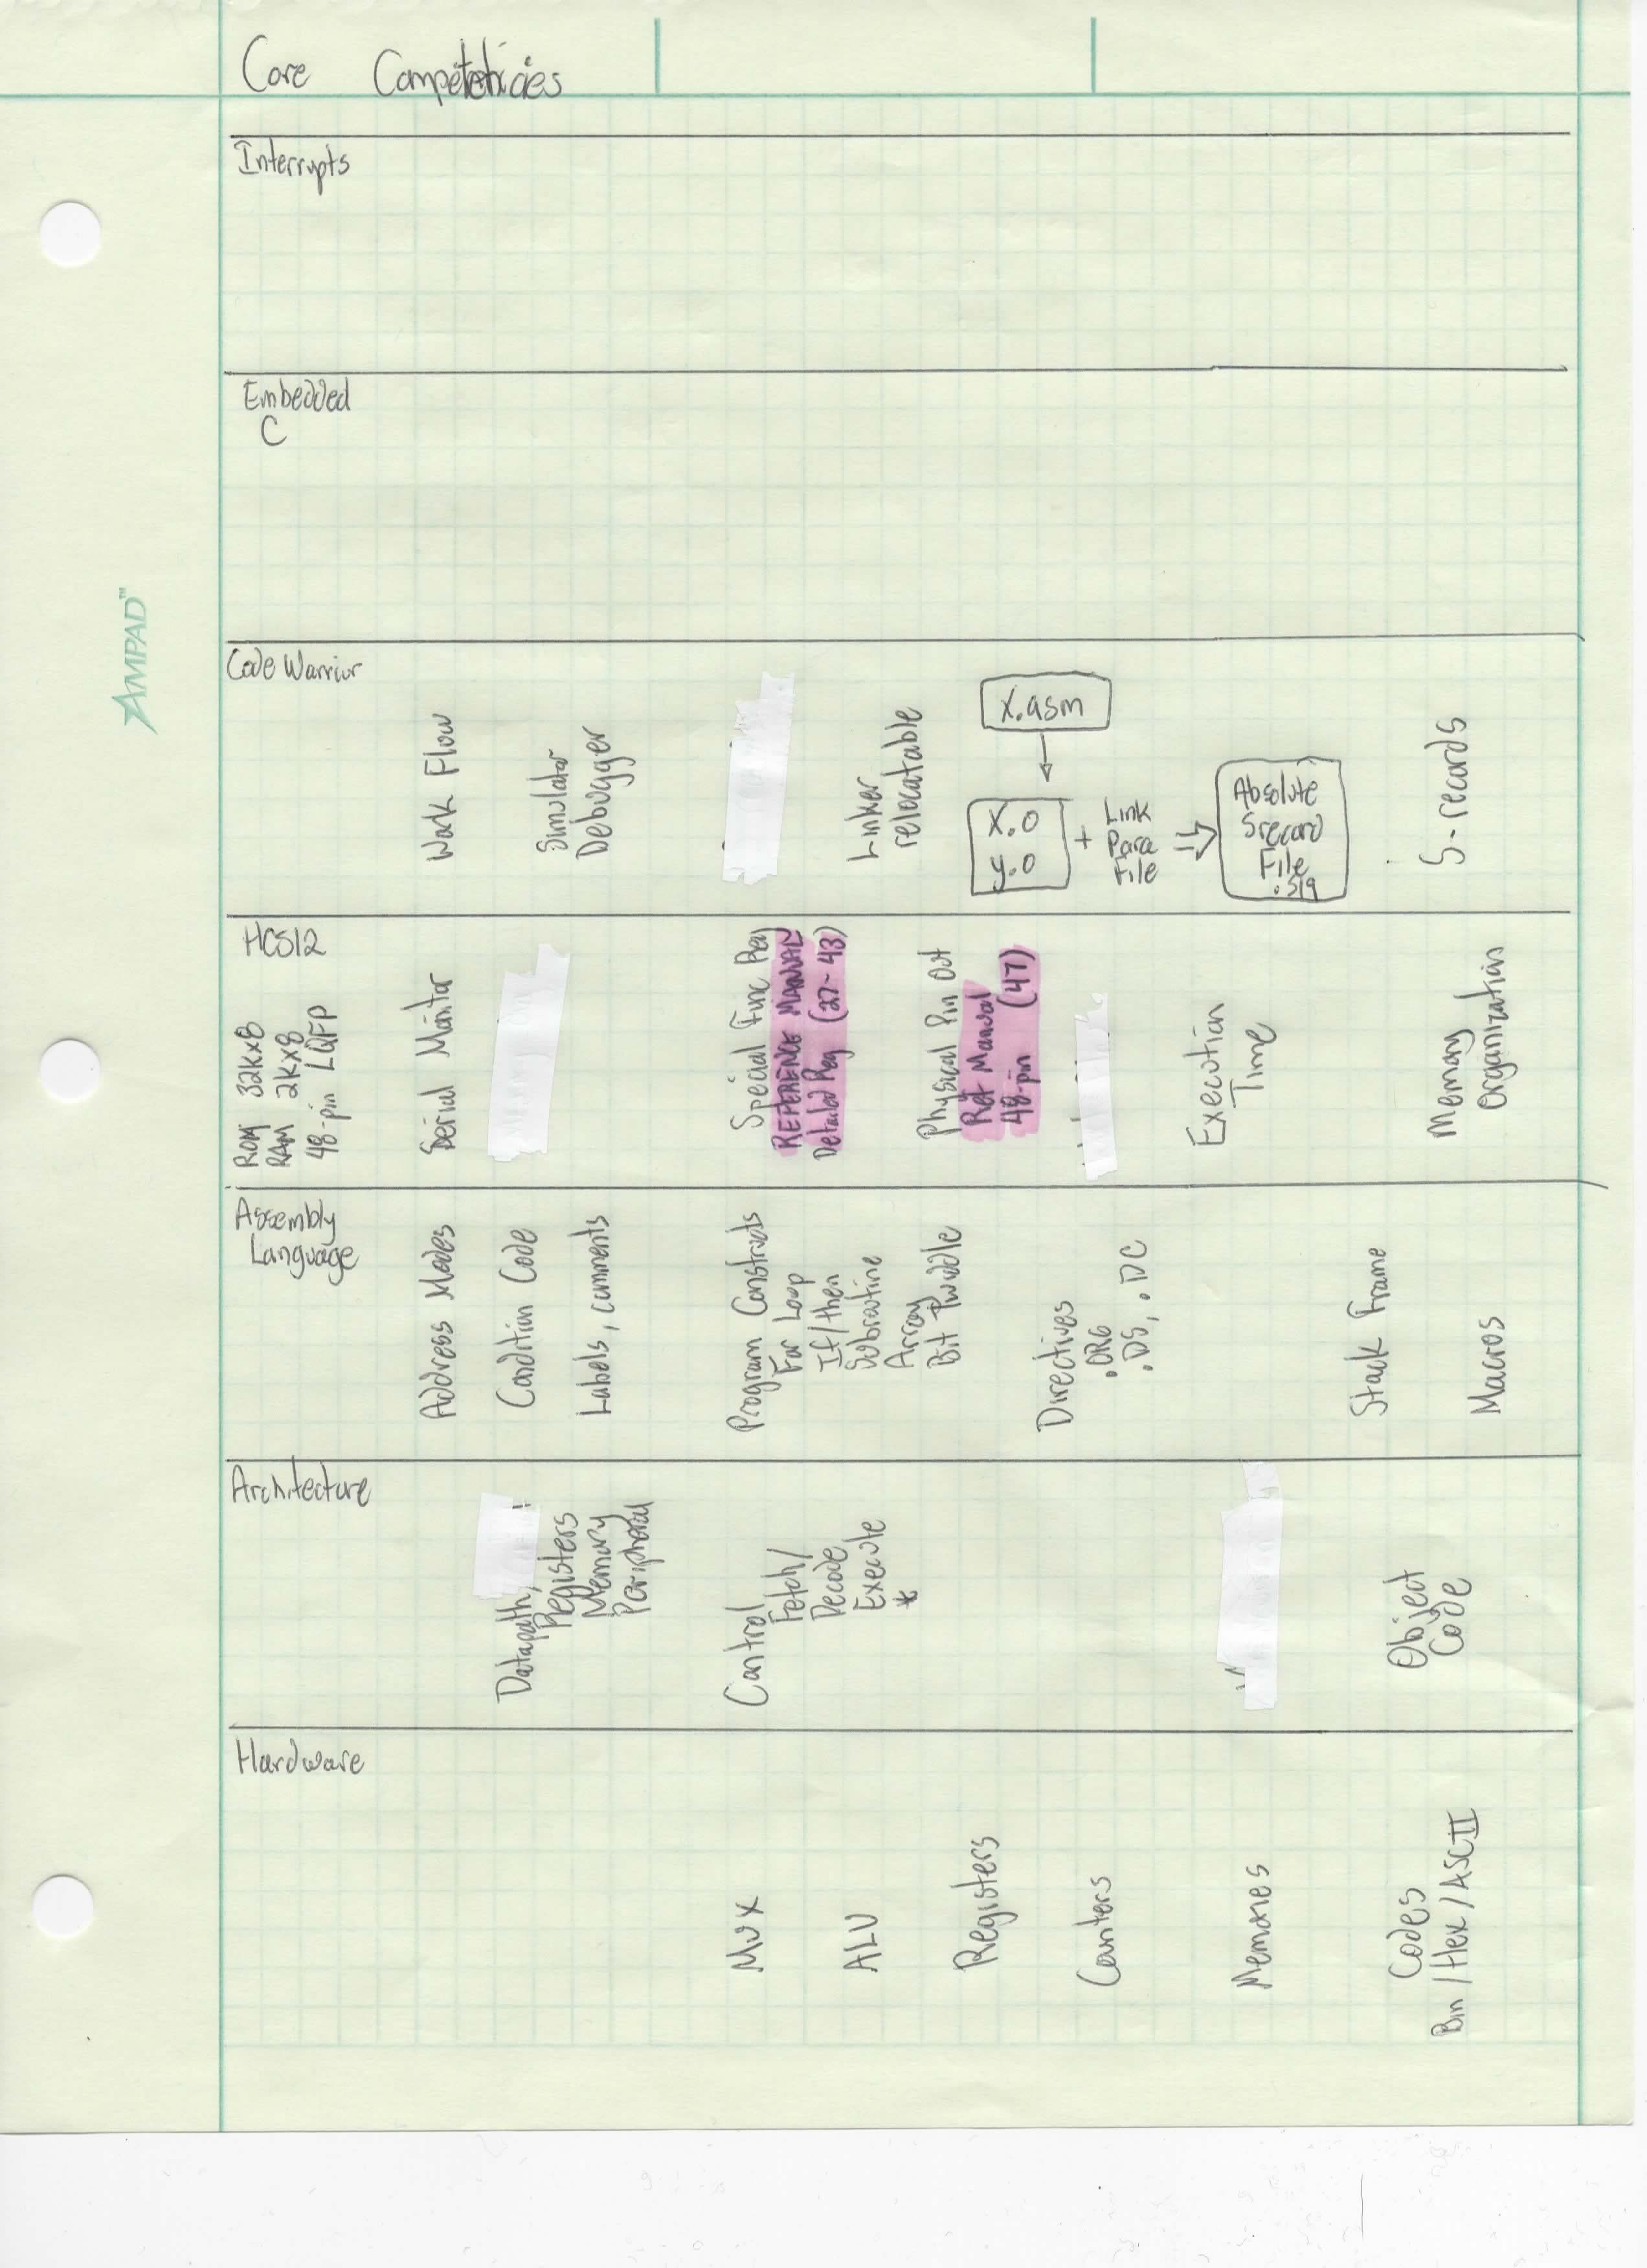 Core Competencies
Interrupts
Embedded
C
AMPAD™
Code Warrior
Work Flow
Simulator
Debugger
Linker
relocatable
x.asm
x.o
y.o
+
Link
Para
File
Absolute
Srecord
File
.S19
S-records
HCS12
ROM 32K×8
RAM 2K×8
48-pin LQFP
Serial Monitor
Special Func Reg
REFERENCE MANUAL
Detailed Reg (27-43)
Physical Pin Out
Ref Manual
48-pin (47)
Execution
Time
Memory
Organization
Assembly
Language
Address Modes
Condition Code
Labels, comments
Program Constructs
For Loop
If/then
Subroutine
Array
Bit Twiddle
Directives
.ORG
.DS, .DC
Stack Frame
Macros
Architecture
Datapath,
Registers
Memory
Peripheral
Control
Fetch/
Decode
Execute
*
Object
Code
Hardware
MUX
ALU
Registers
Counters
Memories
Codes
Bin/Hex/ASCII